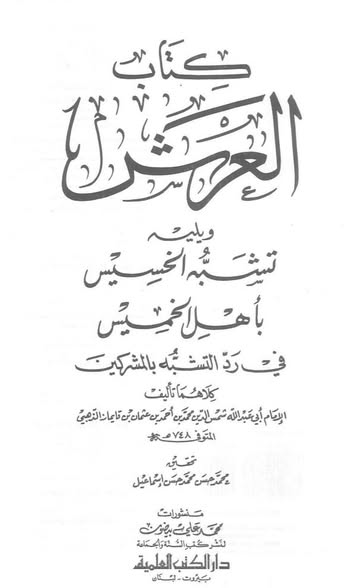 كِتَاب
العَرْش
ويليه
تشبّه الخسيس
بأهل الخميس
في ردّ التشبّه بالمشركين
كلاهما تأليف
الإمام أبي عبد الله شمس الدين محمد بن أحمد بن عثمان بن قايماز الذهبي
المتوفى ٧٤٨ هـ
تحقيق
محمد حسن محمد حسن إسماعيل
منشورات
محمد علي بيضون
لنشر كتب السنة والجماعة
دار الكتب العلمية
بيروت - لبنان